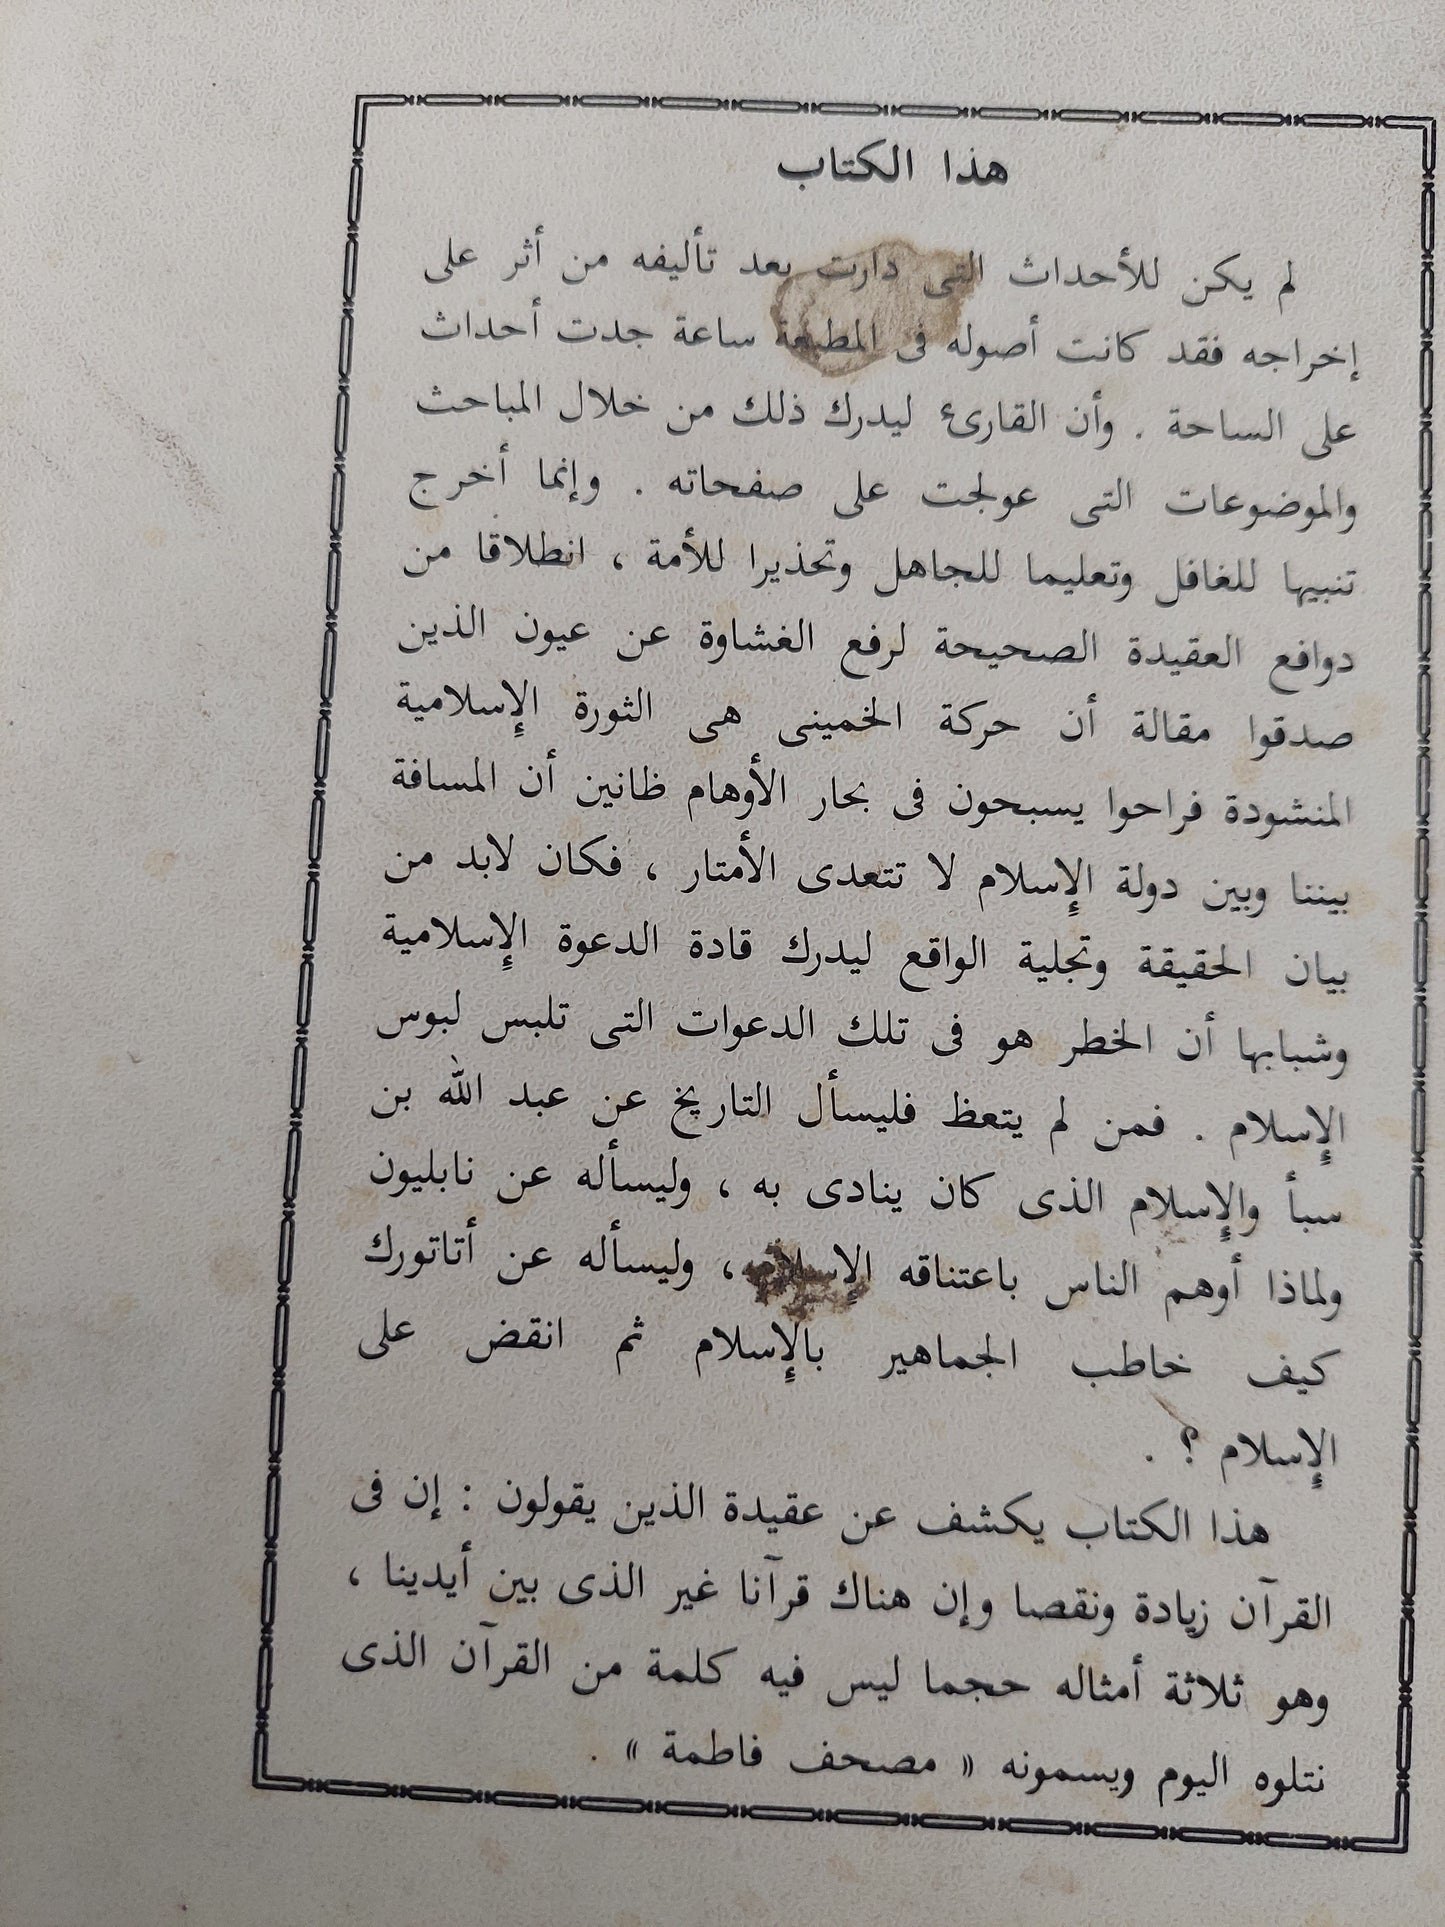 هذا الكتاب
لم يكن للأحداث التى دارت بعد تأليفه من أثر على
إخراجه فقد كانت أصوله فى المطبعة ساعة جدت أحداث
على الساحة . وأن القارئ ليدرك ذلك من خلال المباحث
والموضوعات التى عولجت على صفحاته . وإنما أخرج
تنبيها للغافل وتعليما للجاهل وتحذيرا للأمة ، انطلاقا من
دوافع العقيدة الصحيحة لرفع الغشاوة عن عيون الذين
صدقوا مقالة أن حركة الخمينى هى الثورة الإسلامية
المنشودة فراحوا يسبحون فى بحار الأوهام ظانين أن المسافة
بيننا وبين دولة الإسلام لا تتعدى الأمتار ، فكان لابد من
بيان الحقيقة وتجلية الواقع ليدرك قادة الدعوة الإسلامية
وشبابها أن الخطر هو فى تلك الدعوات التى تلبس لبوس
الإسلام . فمن لم يتعظ فليسأل التاريخ عن عبد الله بن
سبأ والإسلام الذى كان ينادى به ، وليسأله عن نابليون
ولماذا أوهم الناس باعتناقه الإسلام ، وليسأله عن أتاتورك
كيف خاطب الجماهير بالإسلام ثم انقض على
الإسلام ؟ .
هذا الكتاب يكشف عن عقيدة الذين يقولون : إن فى
القرآن زيادة ونقصا وإن هناك قرآنا غير الذى بين أيدينا ،
وهو ثلاثة أمثاله حجما ليس فيه كلمة من القرآن الذى
نتلوه اليوم ويسمونه « مصحف فاطمة » .